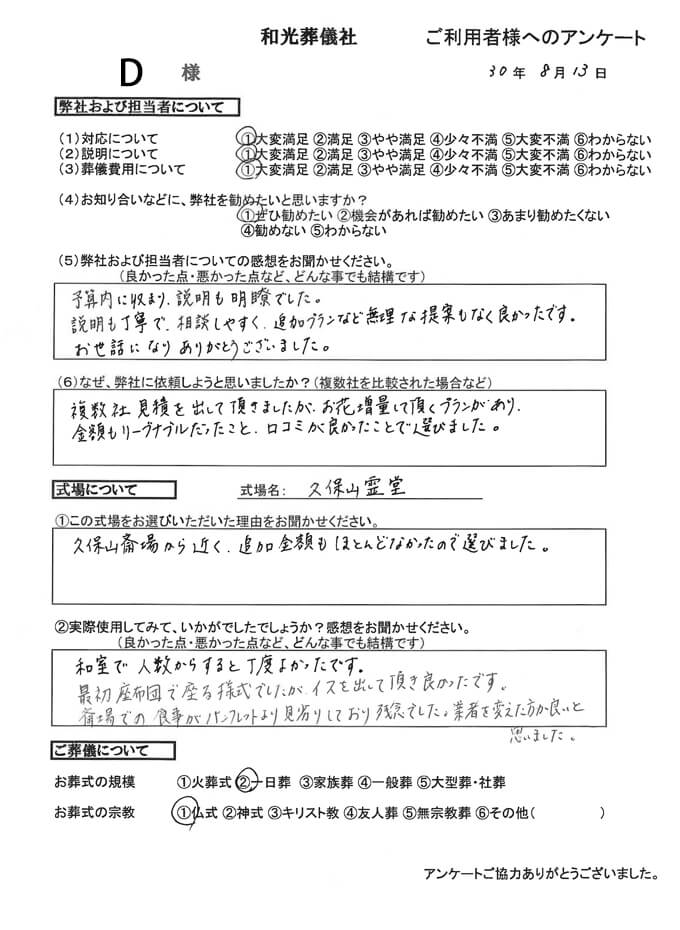 和光葬儀社　ご利用者様へのアンケート
D 様　30年 8月 13日
弊社および担当者について
(1)対応について ①大変満足 ②満足 ③やや満足 ④少々不満 ⑤大変不満 ⑥わからない
(2)説明について ①大変満足 ②満足 ③やや満足 ④少々不満 ⑤大変不満 ⑥わからない
(3)葬儀費用について ①大変満足 ②満足 ③やや満足 ④少々不満 ⑤大変不満 ⑥わからない
(4)お知り合いなどに、弊社を勧めたいと思いますか?
①ぜひ勧めたい ②機会があれば勧めたい ③あまり勧めたくない
④勧めない ⑤わからない
(5)弊社および担当者についての感想をお聞かせください。
(良かった点・悪かった点など、どんな事でも結構です)
予算内に収まり、説明も明瞭でした。
説明も丁寧で、相談しやすく、追加プランなど無理な提案もなく良かったです。
お世話になりありがとうございました。
(6)なぜ、弊社に依頼しようと思いましたか?(複数社を比較された場合など)
複数社見積を出して頂きましたが、お花増量して頂くプランがあり、
金額もリーズナブルだったこと、口コミが良かったことで選びました。
式場について　式場名: 久保山霊堂
①この式場をお選びいただいた理由をお聞かせください。
久保山斎場から近く、追加金額もほとんどなかったので選びました。
②実際使用してみて、いかがでしたでしょうか?感想をお聞かせください。
(良かった点・悪かった点など、どんな事でも結構です)
和室で人数からすると丁度よかったです。
最初座布団で座る様式でしたが、イスを出して頂き良かったです。
斎場での食事がパンフレットより見劣りしており残念でした。業者を変えた方が良いと
思いました。
ご葬儀について
お葬式の規模 ①火葬式 ②一日葬 ③家族葬 ④一般葬 ⑤大型葬・社葬
お葬式の宗教 ①仏式 ②神式 ③キリスト教 ④友人葬 ⑤無宗教葬 ⑥その他(　　　)
アンケートご協力ありがとうございました。